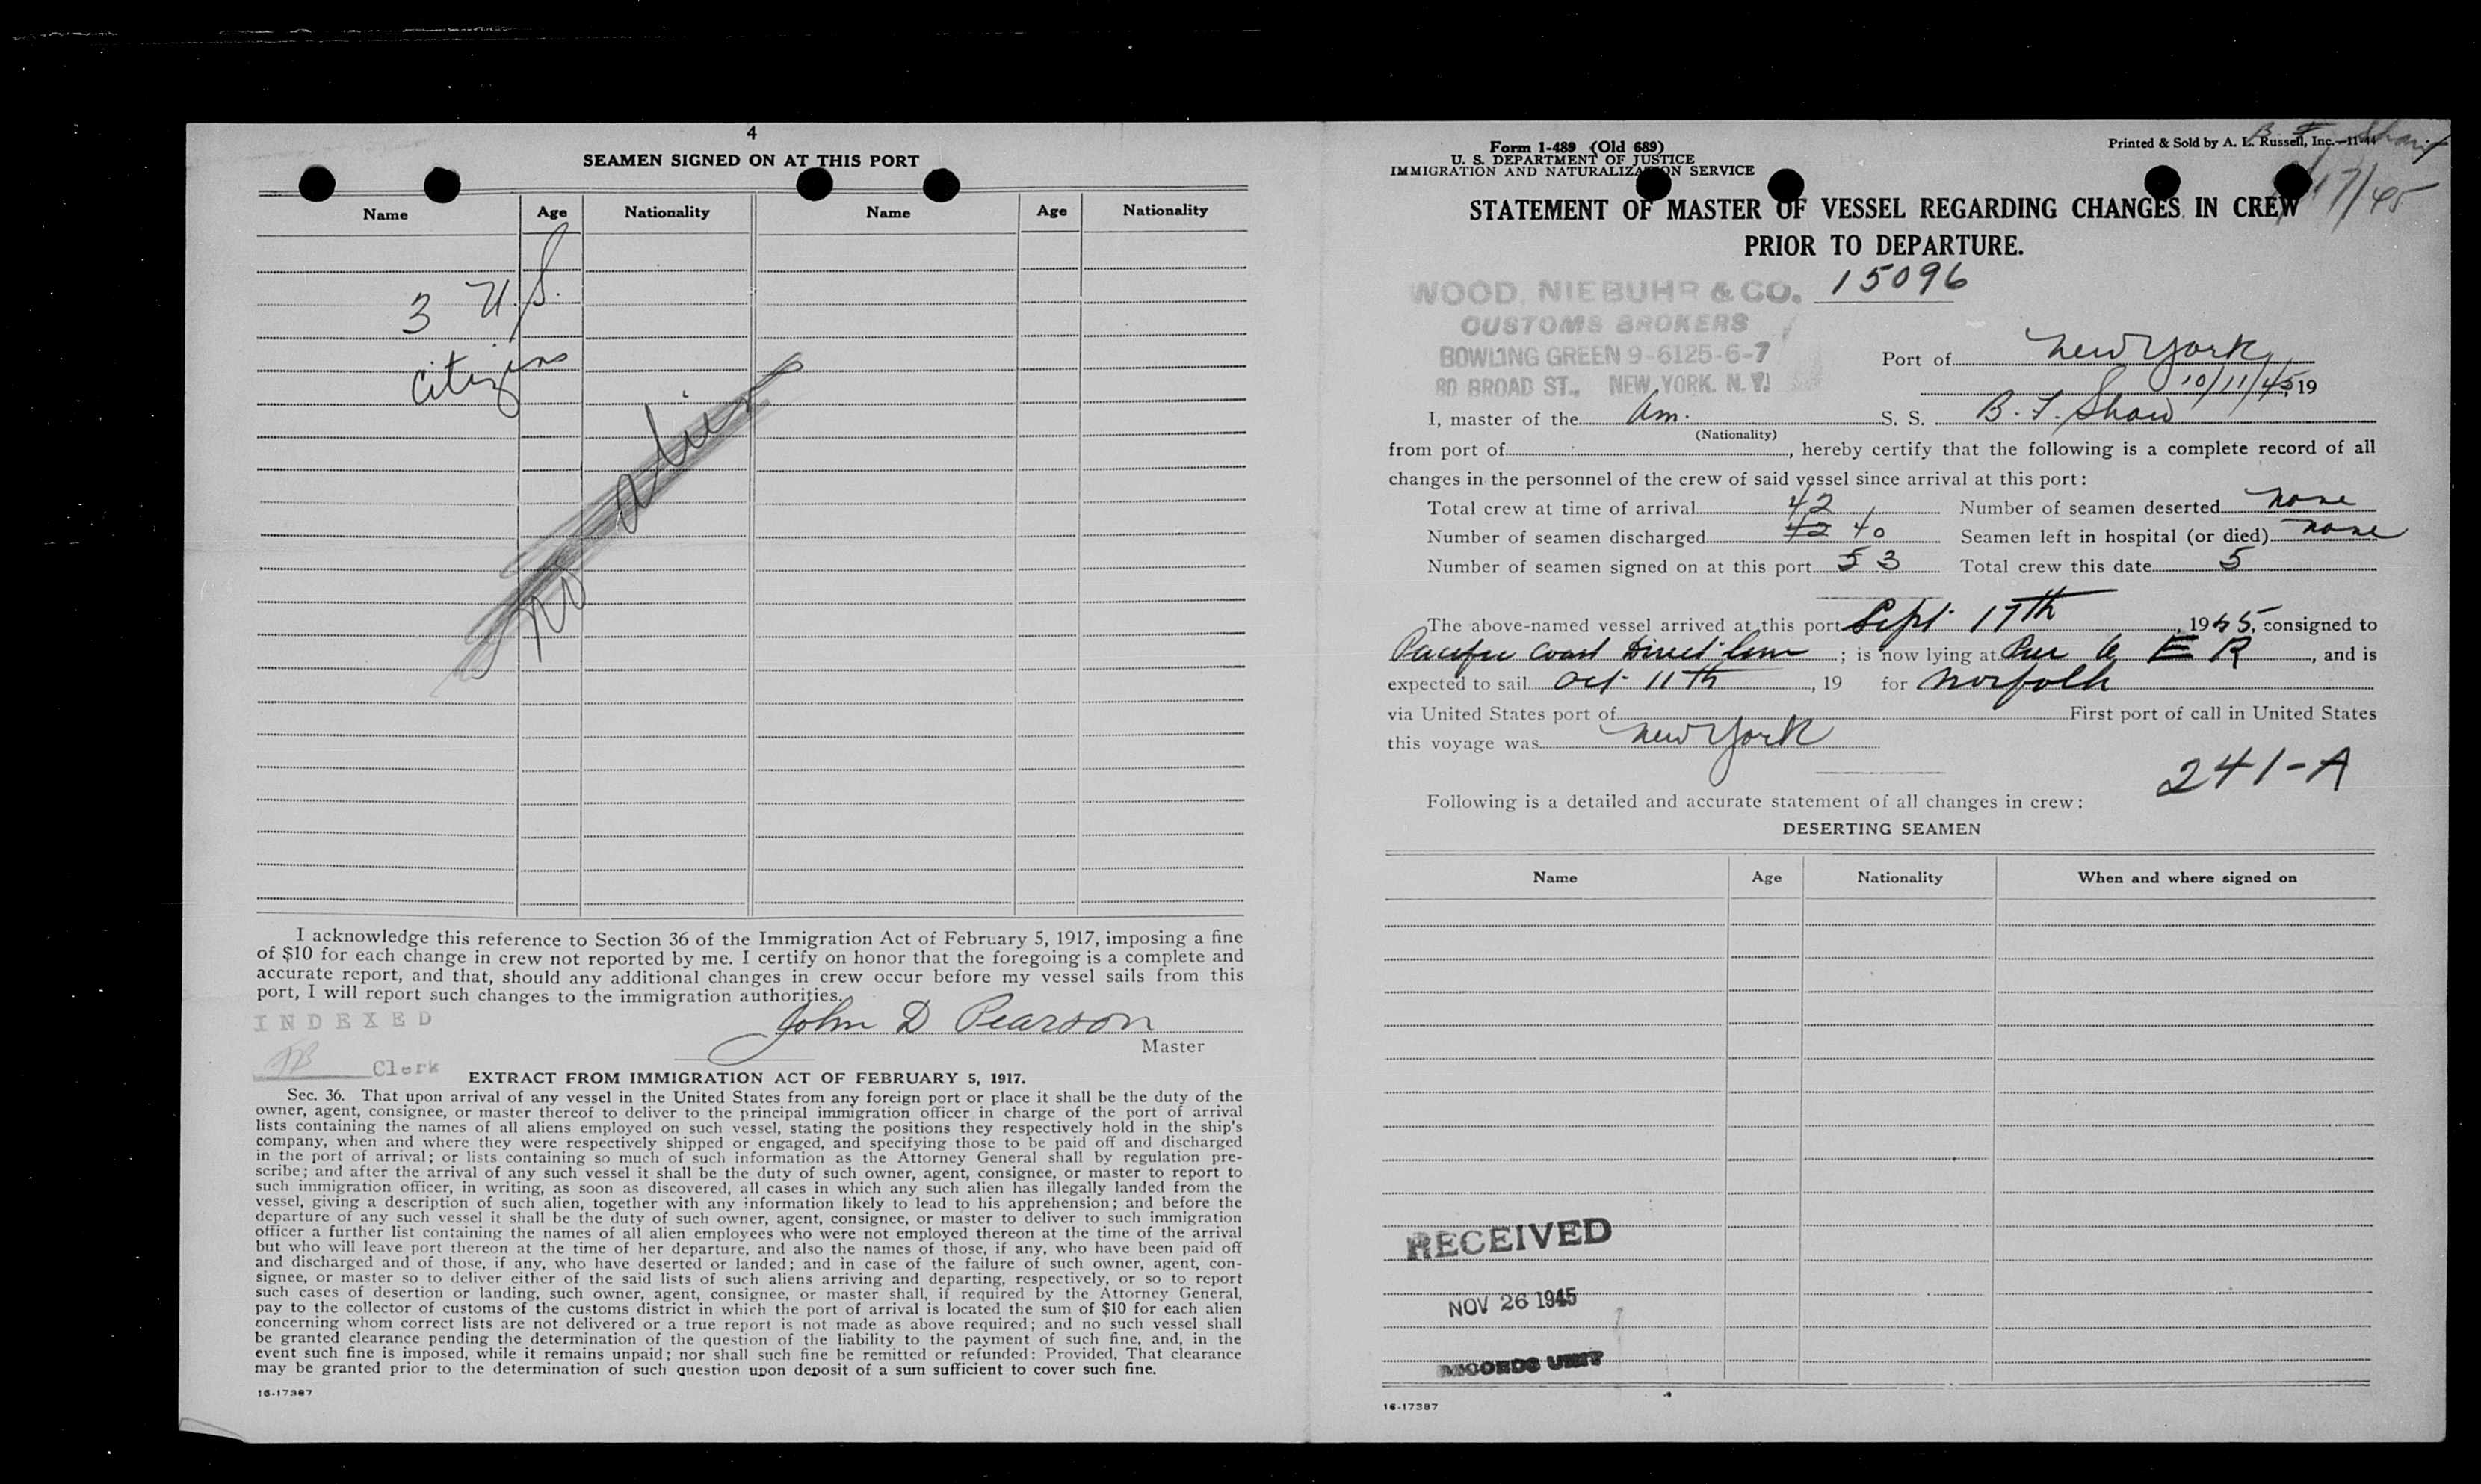 4
SEAMEN SIGNED ON AT THIS PORT
Name Age Nationality Name Age Nationality
3 U.S.
citizens
no aliens
I acknowledge this reference to Section 36 of the Immigration Act of February 5, 1917, imposing a fine
of $10 for each change in crew not reported by me. I certify on honor that the foregoing is a complete and
accurate report, and that, should any additional changes in crew occur before my vessel sails from this
port, I will report such changes to the immigration authorities.
INDEXED
John D Pearson
Master
Clerk
EXTRACT FROM IMMIGRATION ACT OF FEBRUARY 5, 1917.
Sec. 36. That upon arrival of any vessel in the United States from any foreign port or place it shall be the duty of the
owner, agent, consignee, or master thereof to deliver to the principal immigration officer in charge of the port of arrival
lists containing the names of all aliens employed on such vessel, stating the positions they respectively hold in the ship's
company, when and where they were respectively shipped or engaged, and specifying those to be paid off and discharged
in the port of arrival; or lists containing so much of such information as the Attorney General shall by regulation pre-
scribe; and after the arrival of any such vessel it shall be the duty of such owner, agent, consignee, or master to report to
such immigration officer, in writing, as soon as discovered, all cases in which any such alien has illegally landed from the
vessel, giving a description of such alien, together with any information likely to lead to his apprehension; and before the
departure of any such vessel it shall be the duty of such owner, agent, consignee, or master to deliver to such immigration
officer a further list containing the names of all alien employees who were not employed thereon at the time of the arrival
but who will leave port thereon at the time of her departure, and also the names of those, if any, who have been paid off
and discharged and of those, if any, who have deserted or landed; and in case of the failure of such owner, agent, con-
signee, or master so to deliver either of the said lists of such aliens arriving and departing, respectively, or so to report
such cases of desertion or landing, such owner, agent, consignee, or master shall, if required by the Attorney General,
pay to the collector of customs of the customs district in which the port of arrival is located the sum of $10 for each alien
concerning whom correct lists are not delivered or a true report is not made as above required; and no such vessel shall
be granted clearance pending the determination of the question of the liability to the payment of such fine, and, in the
event such fine is imposed, while it remains unpaid; nor shall such fine be remitted or refunded: Provided, That clearance
may be granted prior to the determination of such question upon deposit of a sum sufficient to cover such fine.
16-17387
Form 1-489 (Old 689)
U. S. DEPARTMENT OF JUSTICE
IMMIGRATION AND NATURALIZATION SERVICE
Printed & Sold by A. L. Russell, Inc.—11-44
B. F. Shaw
9/17/45
STATEMENT OF MASTER OF VESSEL REGARDING CHANGES IN CREW
PRIOR TO DEPARTURE.
WOOD, NIEBUHR & CO. 15096
CUSTOMS BROKERS
BOWLING GREEN 9-6125-6-7
80 BROAD ST., NEW YORK, N. Y.
Port of New York
10/11/45, 19
I, master of the Am. S. S. B. F. Shaw
(Nationality)
from port of , hereby certify that the following is a complete record of all
changes in the personnel of the crew of said vessel since arrival at this port:
Total crew at time of arrival 42 Number of seamen deserted none
Number of seamen discharged 42 40 Seamen left in hospital (or died) none
Number of seamen signed on at this port 5 3 Total crew this date 5
The above-named vessel arrived at this port Sept 17th, 1945, consigned to
Pacific Coast Direct Line; is now lying at Pier 6 E R, and is
expected to sail Oct 11th, 19 for Norfolk
via United States port of First port of call in United States
this voyage was New York
241-A
Following is a detailed and accurate statement of all changes in crew:
DESERTING SEAMEN
Name Age Nationality When and where signed on
RECEIVED
NOV 26 1945
RECORDS UNIT
16-17387